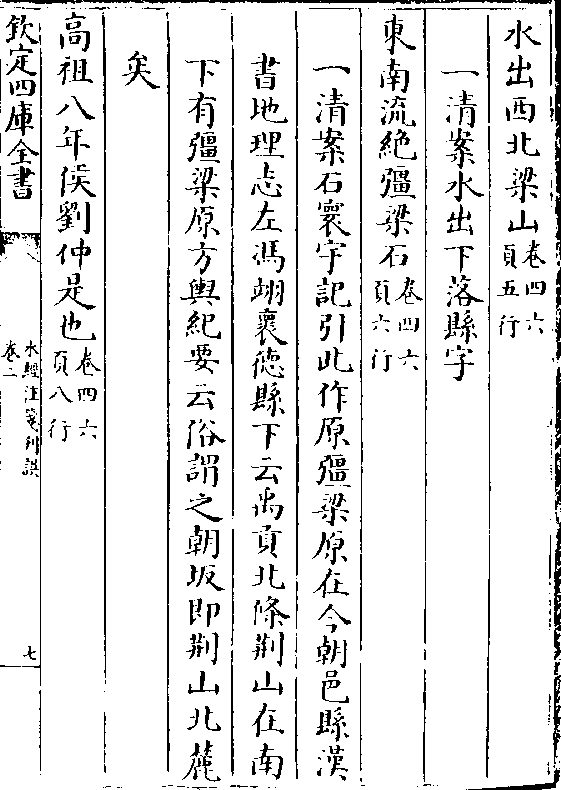 水出西北梁山卷四六頁五行
一清案水出下落縣字
東南流絶彊梁石卷四六頁六行
一清案石寰宇記引此作原彊梁原在今朝邑縣漢
書地理志左馮翊襄德縣下云禹貢北條荆山在南
下有彊梁原方輿紀要云俗謂之朝坂即荆山北麓
矣
高祖八年侯劉仲是也卷四六頁八行
欽定四庫全書
水經注箋刋誤
卷二
七